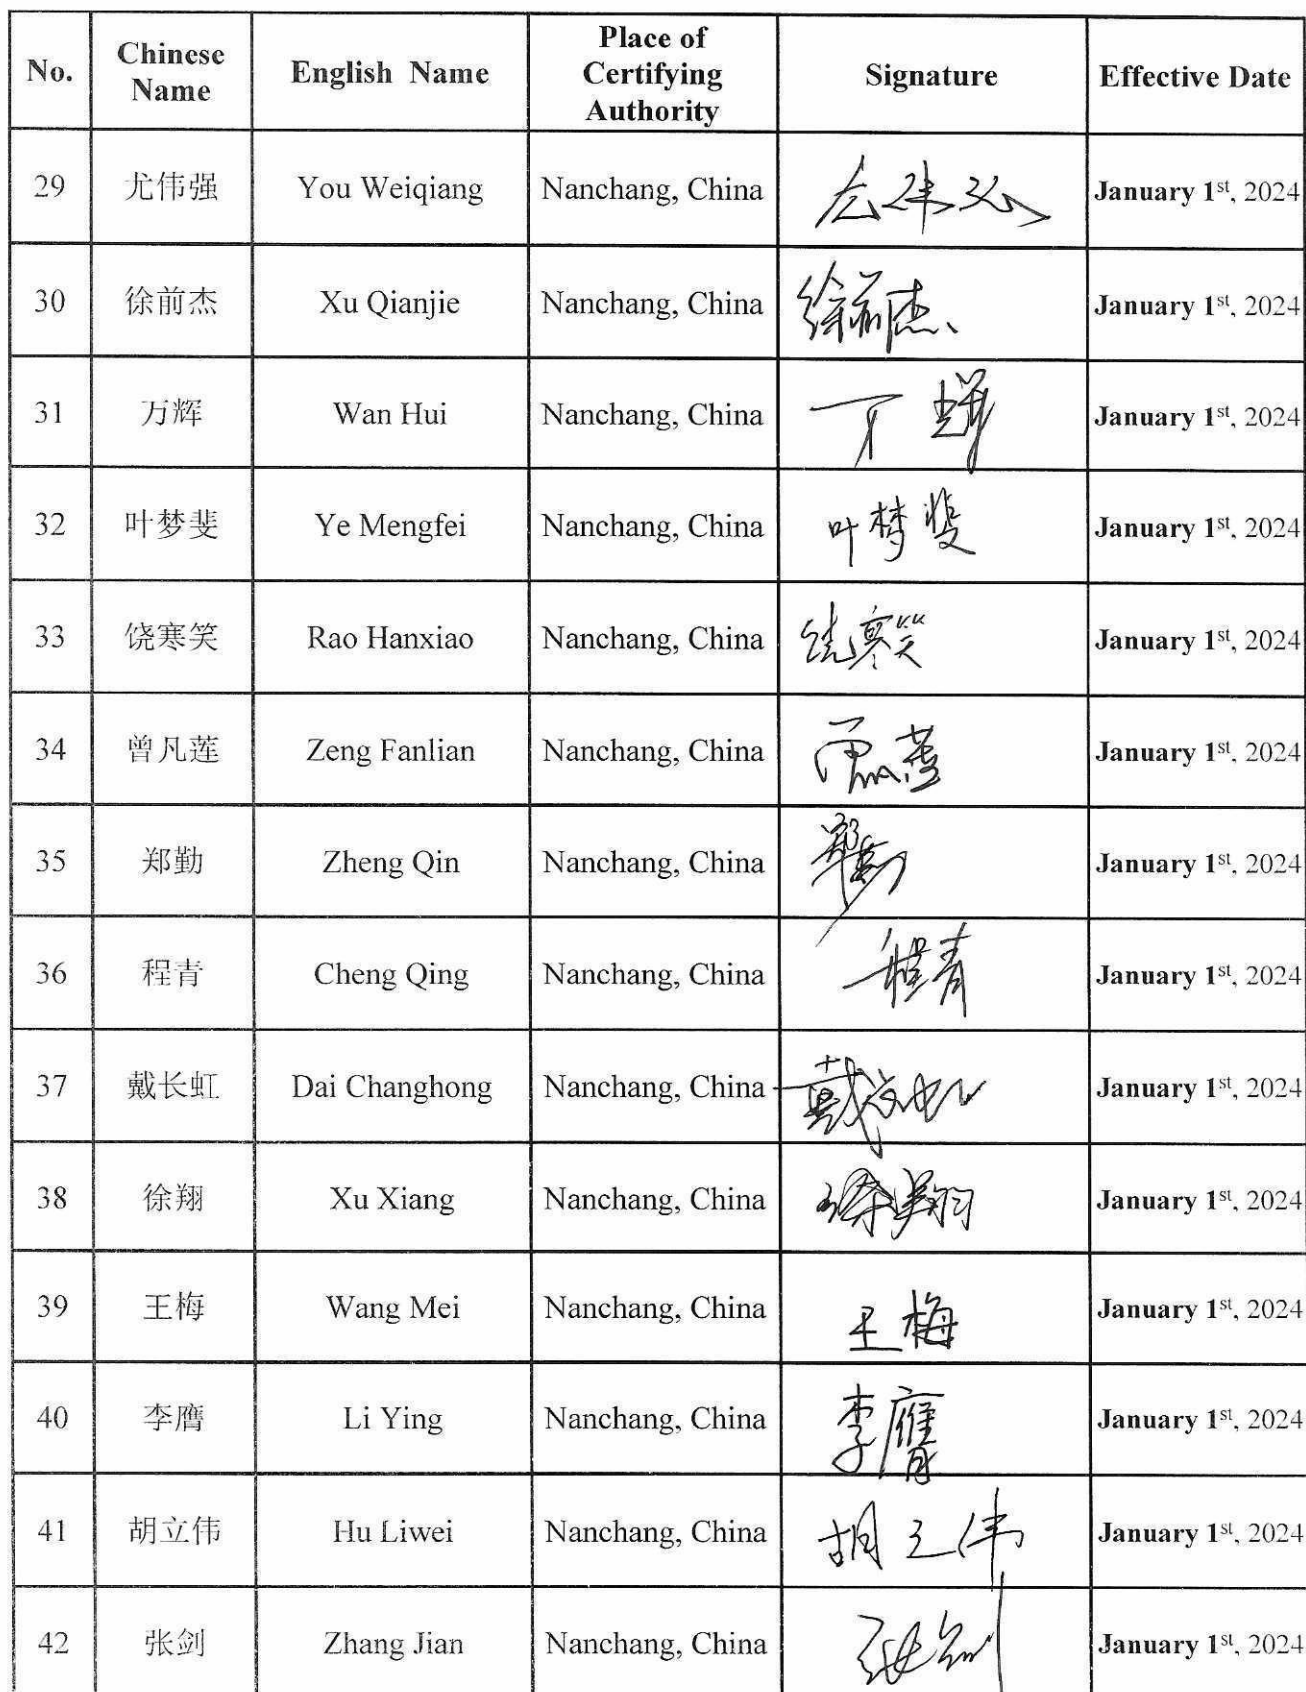 No. Chinese Name English Name Place of Certifying Authority Signature Effective Date
29 尤伟强 You Weiqiang Nanchang, China 尤伟强 January 1st, 2024
30 徐前杰 Xu Qianjie Nanchang, China 徐前杰 January 1st, 2024
31 万辉 Wan Hui Nanchang, China 万辉 January 1st, 2024
32 叶梦斐 Ye Mengfei Nanchang, China 叶梦斐 January 1st, 2024
33 饶寒笑 Rao Hanxiao Nanchang, China 饶寒笑 January 1st, 2024
34 曾凡莲 Zeng Fanlian Nanchang, China January 1st, 2024
35 郑勤 Zheng Qin Nanchang, China 郑勤 January 1st, 2024
36 程青 Cheng Qing Nanchang, China 程青 January 1st, 2024
37 戴长虹 Dai Changhong Nanchang, China 戴长虹 January 1st, 2024
38 徐翔 Xu Xiang Nanchang, China 徐翔 January 1st, 2024
39 王梅 Wang Mei Nanchang, China 王梅 January 1st, 2024
40 李膺 Li Ying Nanchang, China 李膺 January 1st, 2024
41 胡立伟 Hu Liwei Nanchang, China 胡立伟 January 1st, 2024
42 张剑 Zhang Jian Nanchang, China 张剑 January 1st, 2024